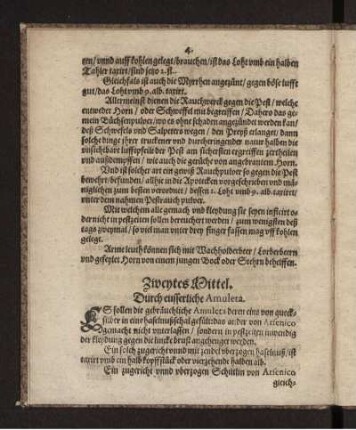 4.
gen/ vnnd auff kohlen gelegt/ brauchen/ ist das Loht vmb ein halben
Tahler taxirt/ sind jetzo 2. fl.
Gleichfals ist auch die Myrrhen angezünt/ gegen böse lufft
gut/ das Loht vmb 9. alb. taxirt.
Allermeinst dienen die Rauchwerck gegen die Pest/ welche
entweder Horn/ oder Schweffel mit begreiffen/ Dahero das ge-
mein Büchsenpulver/ wo es ohne schaden angezündet werden kan/
deß Schwefels vnd Salpetters wegen/ den Preyß erlanget/ dann
solche dinge ihrer truckener vnd durchtringender natur halben die
vnsichtbare lufftspieß der Pest am sichersten ergreiffen zertheilen
vnd außdempffen/ wie auch die gerüche von angebrantem Horn.
Vnd ist solcher art ein gewiß Rauchpulver so gegen die Pest
bewehrt befunden/ allhie in die Apotecken vorgeschrieben vnd mä-
niglichen zum besten verordnet/ dessen 1. Loht vmb 9. alb. taxiret/
vnter dem nahmen Pestrauch pulver.
Mit welchem alle gemach vnd kleydung sie seyen inficirt o-
der nicht in pestzeiten sollen bereuchert werden/ zum wenigsten deß
tags zweymal/ so viel man vnter drey finger fassen mag vff kohlen
gelegt.
Arme leuth können sich mit Wachholderbeer/ Lorbeberrn
vnd gefeylet Horn von einem jungen Bock oder Stehrn behelffen.
Zweytes Mittel.
Durch eusserliche Amuleta.
ES sollen die gebräuchliche Amulets deren eins von queck-
silber in eine haselnußschal gefült/ das ander von Arsenico
gemacht nicht vnterlassen/ sondern in pestzeiten inwendig
der kleydung gegen die lincke brust angehenget werden.
Ein solch zugericht vnnd mit zendel vberzogen haselnuß/ ist
taxirt vmb ein halb kopffstück oder vierzehendt halben alb.
Ein zugericht vnnd vberzogen Schiltlin von Arsenico
gleich-